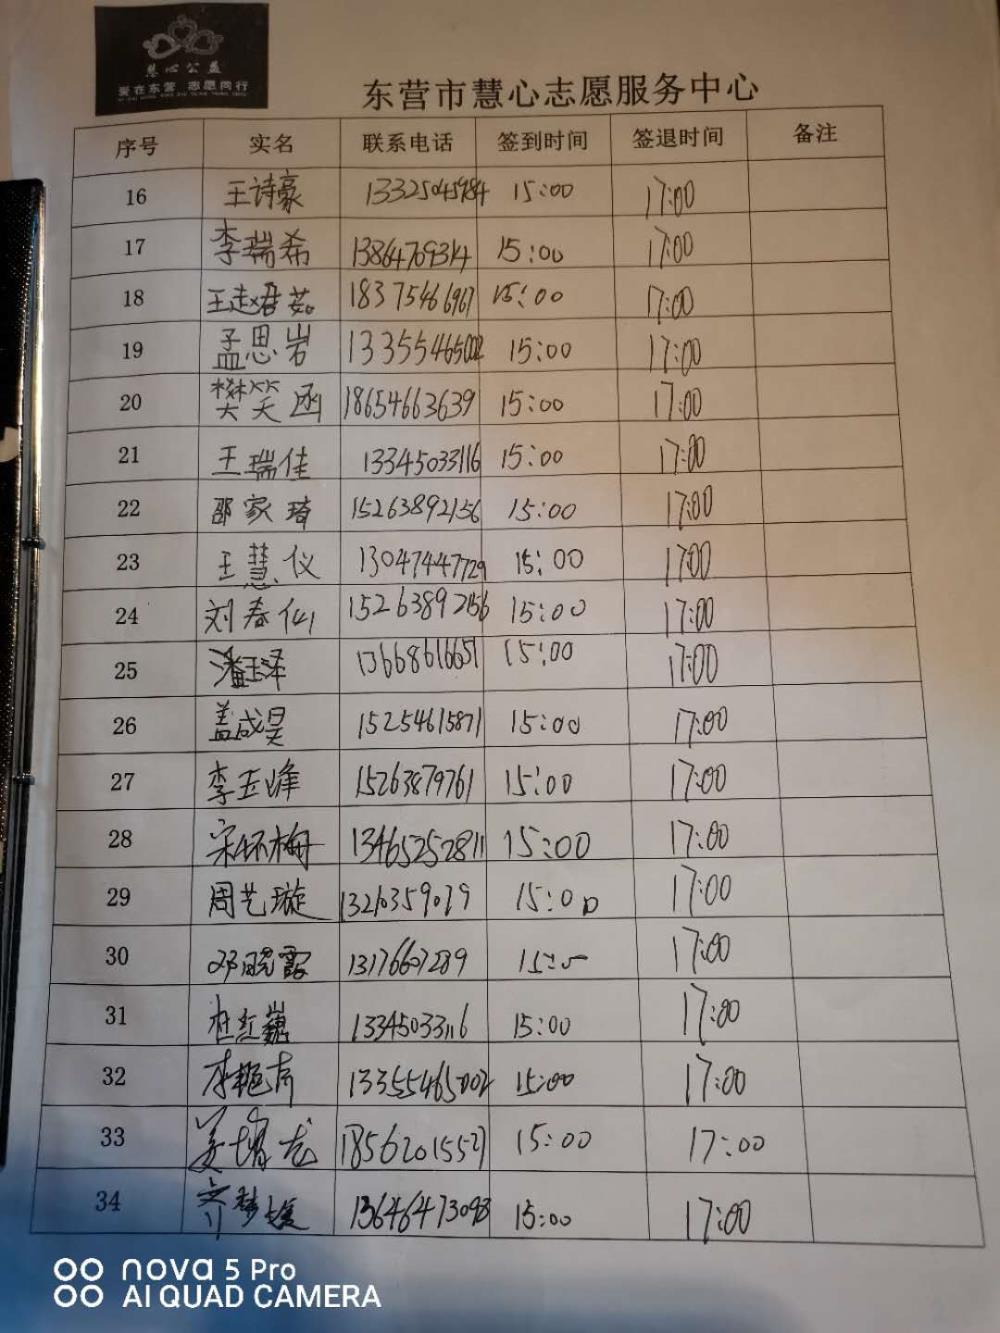 慧心公益
爱在东营 志愿同行
东营市慧心志愿服务中心
序号 实名 联系电话 签到时间 签退时间 备注
16 王诗豪 13325045984 15:00 17:00
17 李瑞希 13864769314 15:00 17:00
18 王赵君茹 18375466967 15:00 17:00
19 孟思岩 13355465002 15:00 17:00
20 樊笑函 18654663639 15:00 17:00
21 王瑞佳 13345033116 15:00 17:00
22 邵家琦 15263892156 15:00 17:00
23 王慧仪 13047447729 15:00 17:00
24 刘春仙 15263892156 15:00 17:00
25 潘玉泽 13668616651 15:00 17:00
26 盖成昊 15254615871 15:00 17:00
27 李玉峰 15263879761 15:00 17:00
28 宋怀梅 13465252811 15:00 17:00
29 周艺璇 15:00 17:00
30 邓晓霞 13176607289 15:00 17:00
31 杜红巍 13345033116 15:00 17:00
32 李艳芹 13355465002 15:00 17:00
33 姜增龙 18562015527 15:00 17:00
34 齐梦媛 13646473093 15:00 17:00
nova 5 Pro
AI QUAD CAMERA